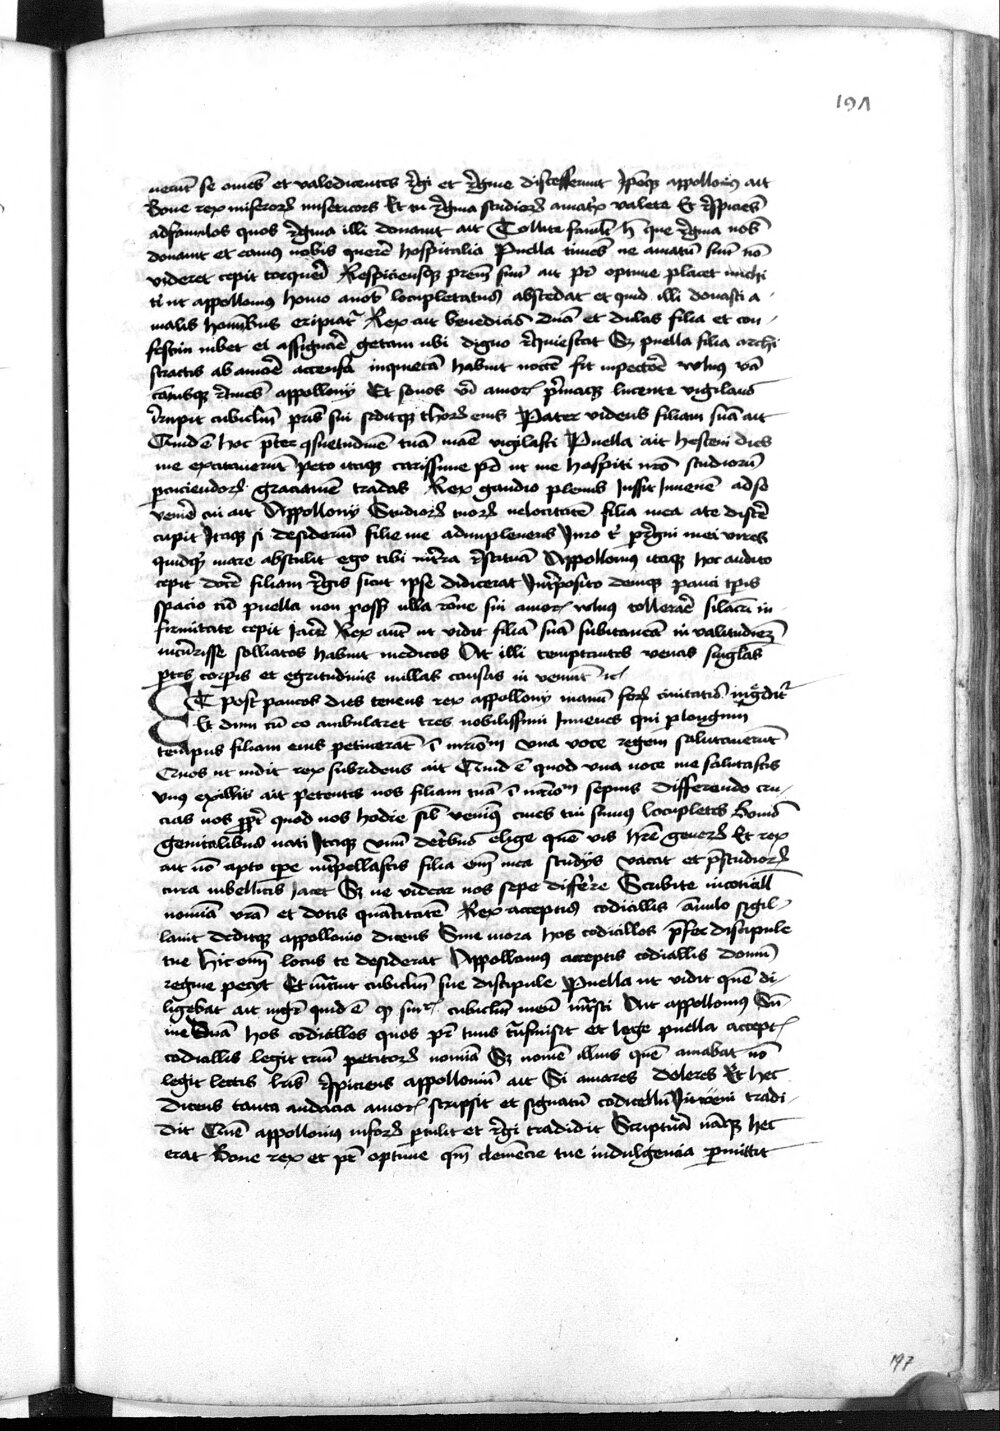 191
nerunt se omēs et valedicentes rgi et rgine discesserunt Ipsoqʒ appollonio ait
Bone rex miserorꝫ misericors Et tu rgina studiorꝫ amatrix valete Et rspiciēs
ad famulos quos rgina illi donavit ait Tollite famuli hec que rgina nob
donavit et eamꝰ nobis querē hospitalia Puella timēs ne amatū suū nō
videret cepit torqueri Respiciensqʒ prem suū ait pr optime placet michi
ti ut appollonius homo a nob locupletatus abscedat et quid illi donasti a
malis hominibus eripiatr Rex ait benedicās dnā et dulcis filia et con
festim iubet ei assignarē zetam ubi digno rquiescat Sʒ puella filia archi
stractis ab amore accensa inquietā habuit noctē fit in pectore vulnꝰ vā
cantusqʒ rtinēs appollonii Et sonos nō amorē primaqʒ lucente vigilans
irrupit cubiclm pris sui seditqʒ thorꝫ eius Pater videns filiam suā ait
Quid ē hoc preter qsuetudinē tuā mane vigilasti Puella ait hesterni dies
me excitaverūt peto itaqʒ carissime pr ut me hospiti nro studiorū
perciendorꝫ graciamē tradas Rex gaudio plenus Jussit Juvenē ad se
venire cui ait Appollonii Studiorꝫ tuorꝫ velocitatē filia mea a te discere
cupit Itaqʒ si desideriū filie me adimpleveris Juro tr per rgni mei vires
quidqʒ mare abstulit ego tibi in terra rstituā Appollonius itaqʒ hoc audito
cepit docere filiam rgis sicut ipse didicerat Interposito denuqʒ pauci tpis
spacio cū puella non posset ulla rōne sui amorꝫ vulnꝰ tollerare silatā in
firmitate cepit jacere Rex aut ut vidit filiā suā subitaneā in valitudinē
incurrisse sollicitos habuit medicos At illi temptantes venas singlas
ptes corpis et egritudinis nullas causas in veniut rc
ET post paucos dies tenens rex appollonii manū forꝫ civitatis ingreditr
Et dum cū eo ambularet tres nobilissimi Juvenes qui p longum
tempus filiam eius petiverāt ī mrīom una voce regem salutaverūt
Quos ut vidit rex subridens ait Quid ē quod una voce me salutastis
vnꝰ ex illis ait petentes nos filiam tuā ī mrīom sepius differendo cru
cias nos ppt quod nos hodie sil venimꝰ cives tui sumus locupletes Bonis
genitalibus nati Itaqʒ vnū de tribus elige quē vis habere generū Et rex
ait nō apto tpe interpellastis filia em mea studiis vacat et p studiorꝫ
cura imbellicis jacet Sʒ ne videar vos sepe differre Scribite in codicell
nomina vra et dotis quantitatē Rex acceptis codicillis anulo sigil
lavit deditqʒ appollonio dicens Sine mora hos codicillos pfer discipule
tue hic em locus te desiderat Appollonius acceptis codicillis domū
regine petiit Et intravit cubiclm sue discipule Puella ut vidit quē di
ligebat ait mgr quid ē qʒ singlr cubiclm meū intrasti Ait appollonius Sū
me Dnā hos codicillos quos pr tuus trasmisit et lege puella acceptꝫ
codicillis legit triū petitorꝫ nomina Sʒ nomē illius quē amabat nō
legit lectis lris rspiciens appolloniū ait Si amares doleres Et hec
dicens tanta audacia amorꝫ scripsit et signatū codicellū Juveni tradi
dit Quē appollonius in forꝫ ptulit et rgi tradidit Scriptura nāqʒ hec
erat Bone rex et pr optime qm clemēcie tue indulgencia permittit
197